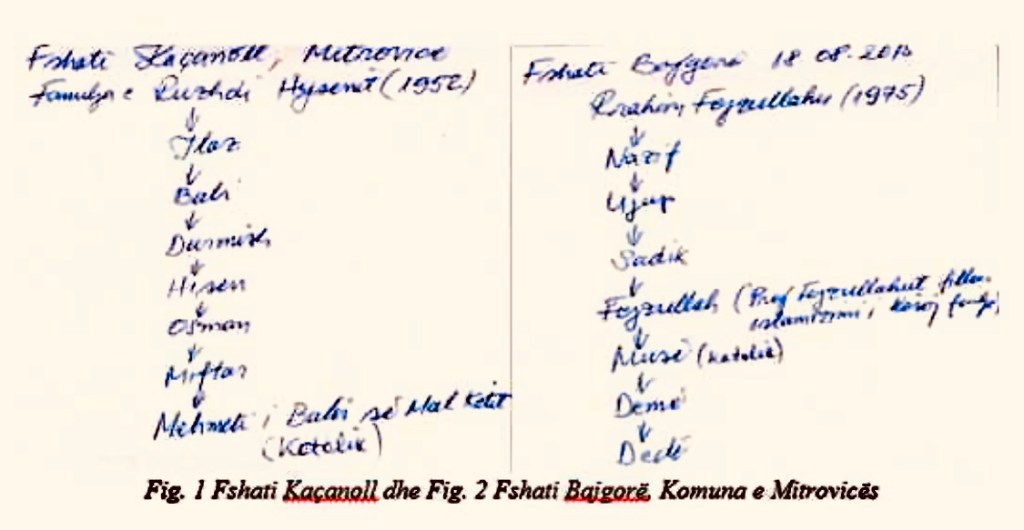 Fshati Kaçanoll, Mitrovice
Familja e Ruzhdi Hysenit (1952)
↓
Ilaz
↓
Bali
↓
Durmish
↓
Hisen
↓
Osman
↓
Miftar
↓
Mehmeti i Balii së Mal
(Katolik)
Fshati Bajgorë 18 08.2013
Rrahim Fejzullahu (1975)
↓
Nazif
↓
Ujup
↓
Sadik
↓
Fejzullah (Prej Fejzullahut fillon
islamizimi i kësaj
↓
Musë (katolik)
↓
Demë
↓
Dedë
Fig. 1 Fshati Kaçanoll dhe Fig. 2 Fshati Bajgorë, Komuna e Mitrovicës